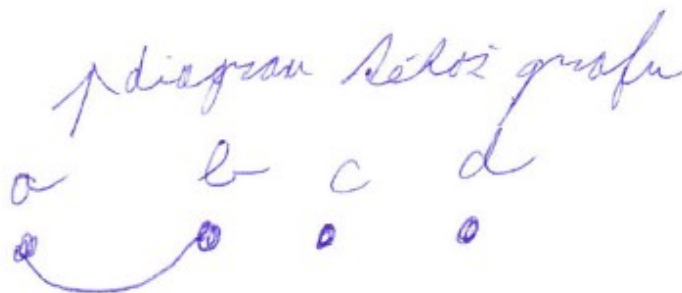 ↑ diagram téhož grafu
a b c d